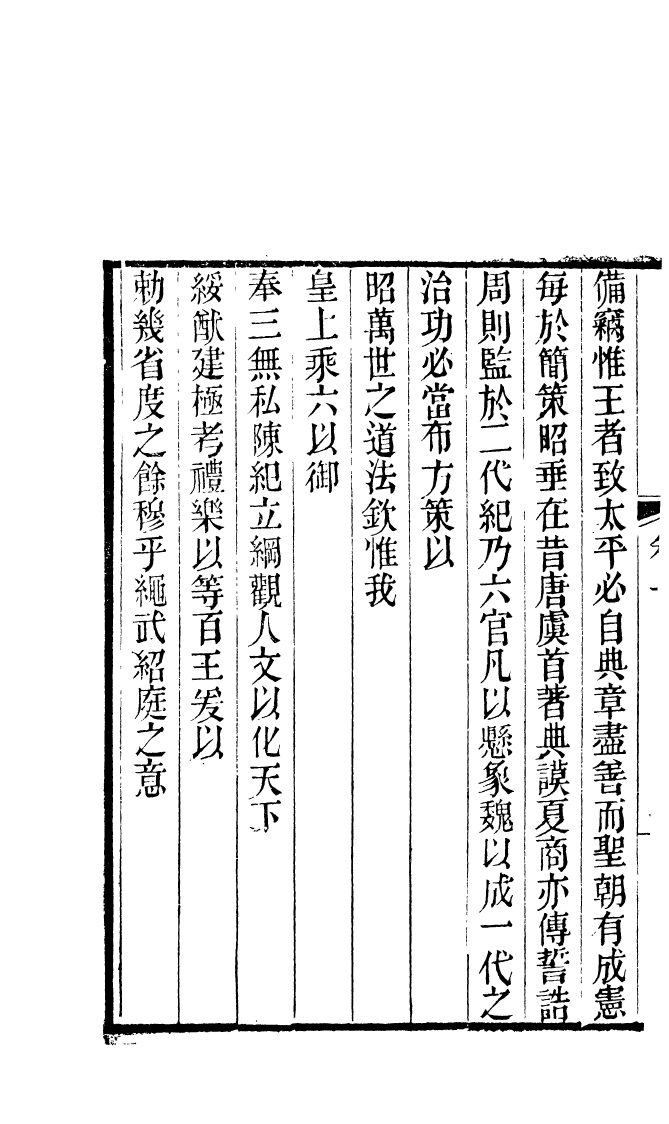 備竊惟王者致太平必自典章盡善而聖朝有成憲
每於簡策昭垂在昔唐虞首著典謨夏商亦傳誓誥
周則監於二代紀乃六官凡以懸象魏以成一代之
治功必當布方策以
昭萬世之道法欽惟我
皇上乘六以御
奉三無私陳紀立綱觀人文以化天下
綏猷建極考禮樂以等百王爰以
勅幾省度之餘穆乎繩武紹庭之意